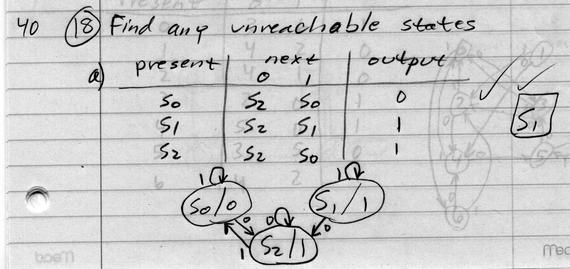 40 (18) Find any unreachable states
a) present next output
0 1
S0 S2 S0 0
S1 S2 S1 1
S1
S2 S2 S0 1
1 1
S0/0 S1/1
0 0 0
S2/1
1